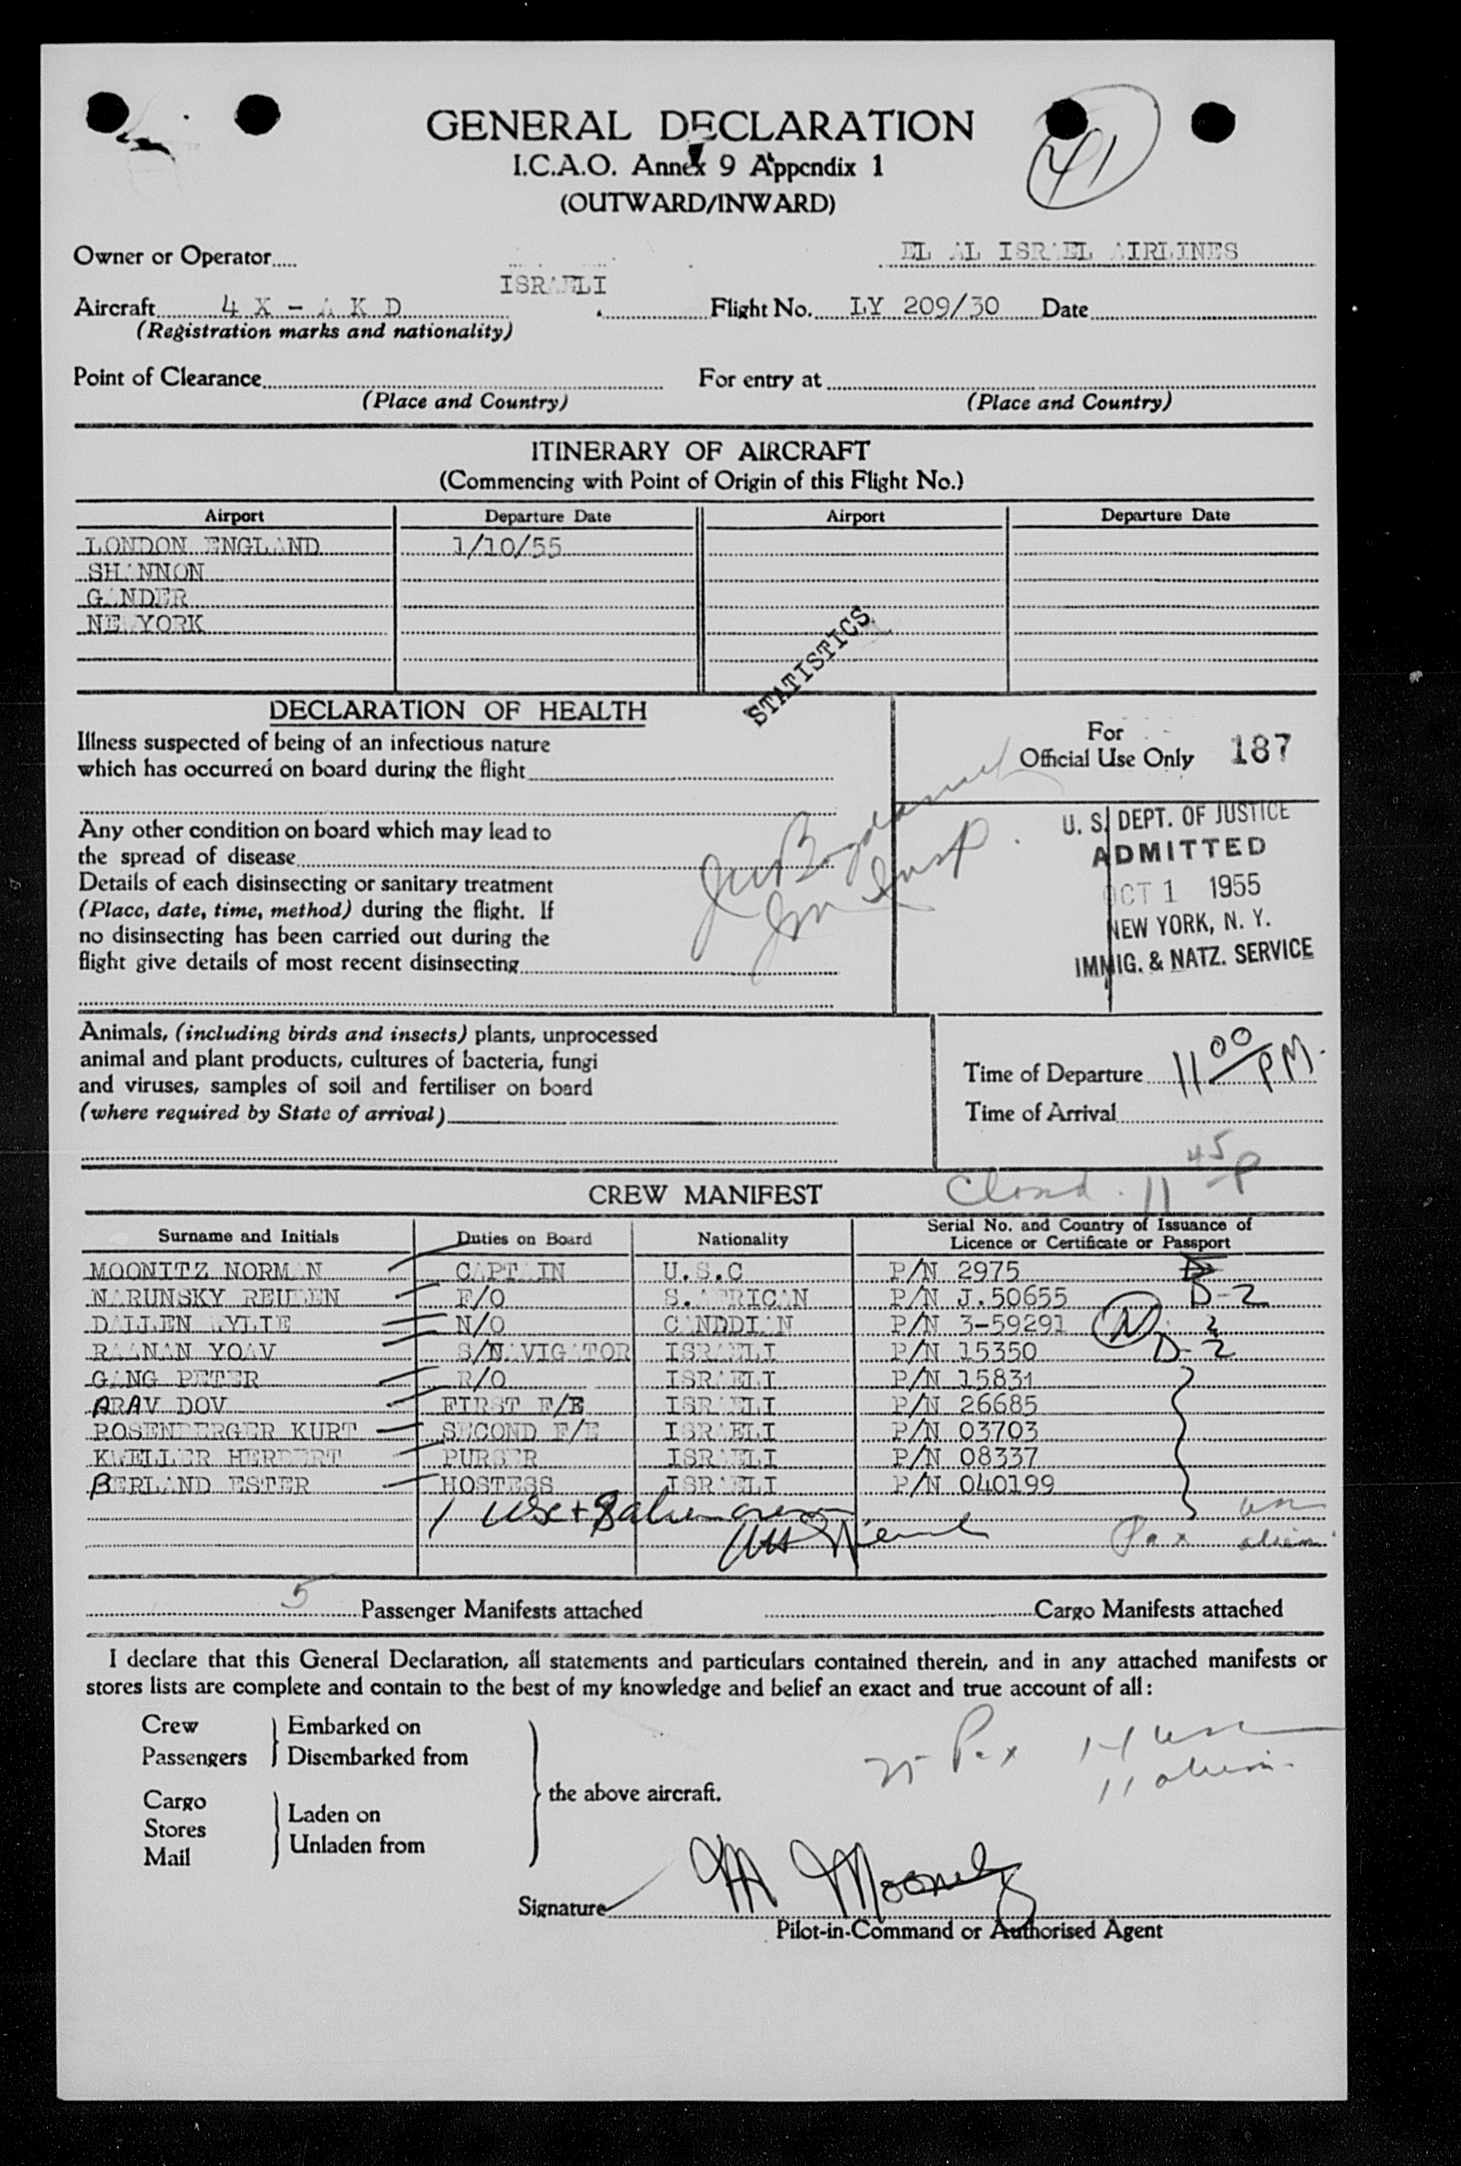 41
GENERAL DECLARATION
I.C.A.O. Annex 9 Appendix 1
(OUTWARD/INWARD)
Owner or Operator EL AL ISRAEL AIRLINES
ISRAELI
Aircraft 4 X - A K D Flight No. LY 209/30 Date
(Registration marks and nationality)
Point of Clearance For entry at
(Place and Country) (Place and Country)
ITINERARY OF AIRCRAFT
(Commencing with Point of Origin of this Flight No.)
Airport Departure Date Airport Departure Date
LONDON ENGLAND 1/10/55
SHANNON
GANDER
NEW YORK
STATISTICS
DECLARATION OF HEALTH
Illness suspected of being of an infectious nature
which has occurred on board during the flight
For
Official Use Only 187
Any other condition on board which may lead to
the spread of disease
Details of each disinsecting or sanitary treatment
(Place, date, time, method) during the flight. If
no disinsecting has been carried out during the
flight give details of most recent disinsecting
Insp.
U. S. DEPT. OF JUSTICE
ADMITTED
OCT 1 1955
NEW YORK, N. Y.
IMMIG. & NATZ. SERVICE
Animals, (including birds and insects) plants, unprocessed
animal and plant products, cultures of bacteria, fungi
and viruses, samples of soil and fertiliser on board
(where required by State of arrival)
Time of Departure 11 00 PM.
Time of Arrival
11 45 P
CREW MANIFEST
Surname and Initials Duties on Board Nationality Serial No. and Country of Issuance of
Licence or Certificate or Passport
MOONITZ NORMAN CAPTAIN U.S.C P/N 2975
NARUNSKY REUBEN F/O S.AFRICAN P/N J.50655 D-2
DALLEN WYLIE N/O CANDDIAN P/N 3-59291 N 2
RAANAN YOAV S/NAVIGATOR ISRAELI P/N 15350 D-2
GANG PETER R/O ISRAELI P/N 15831
ARAV DOV FIRST F/E ISRAELI P/N 26685
ROSENBERGER KURT SECOND F/E ISRAELI P/N 03703
KWELLER HERBERT PURSER ISRAELI P/N 08337
BERLAND ESTER HOSTESS ISRAELI P/N 040199
1 USC + 8 alien crew
Pax alien
5 Passenger Manifests attached Cargo Manifests attached
I declare that this General Declaration, all statements and particulars contained therein, and in any attached manifests or
stores lists are complete and contain to the best of my knowledge and belief an exact and true account of all:
Crew Embarked on
Passengers Disembarked from
Pax
11 alien
Cargo
Stores
Mail
Laden on
Unladen from
the above aircraft.
Signature
Pilot-in-Command or Authorised Agent